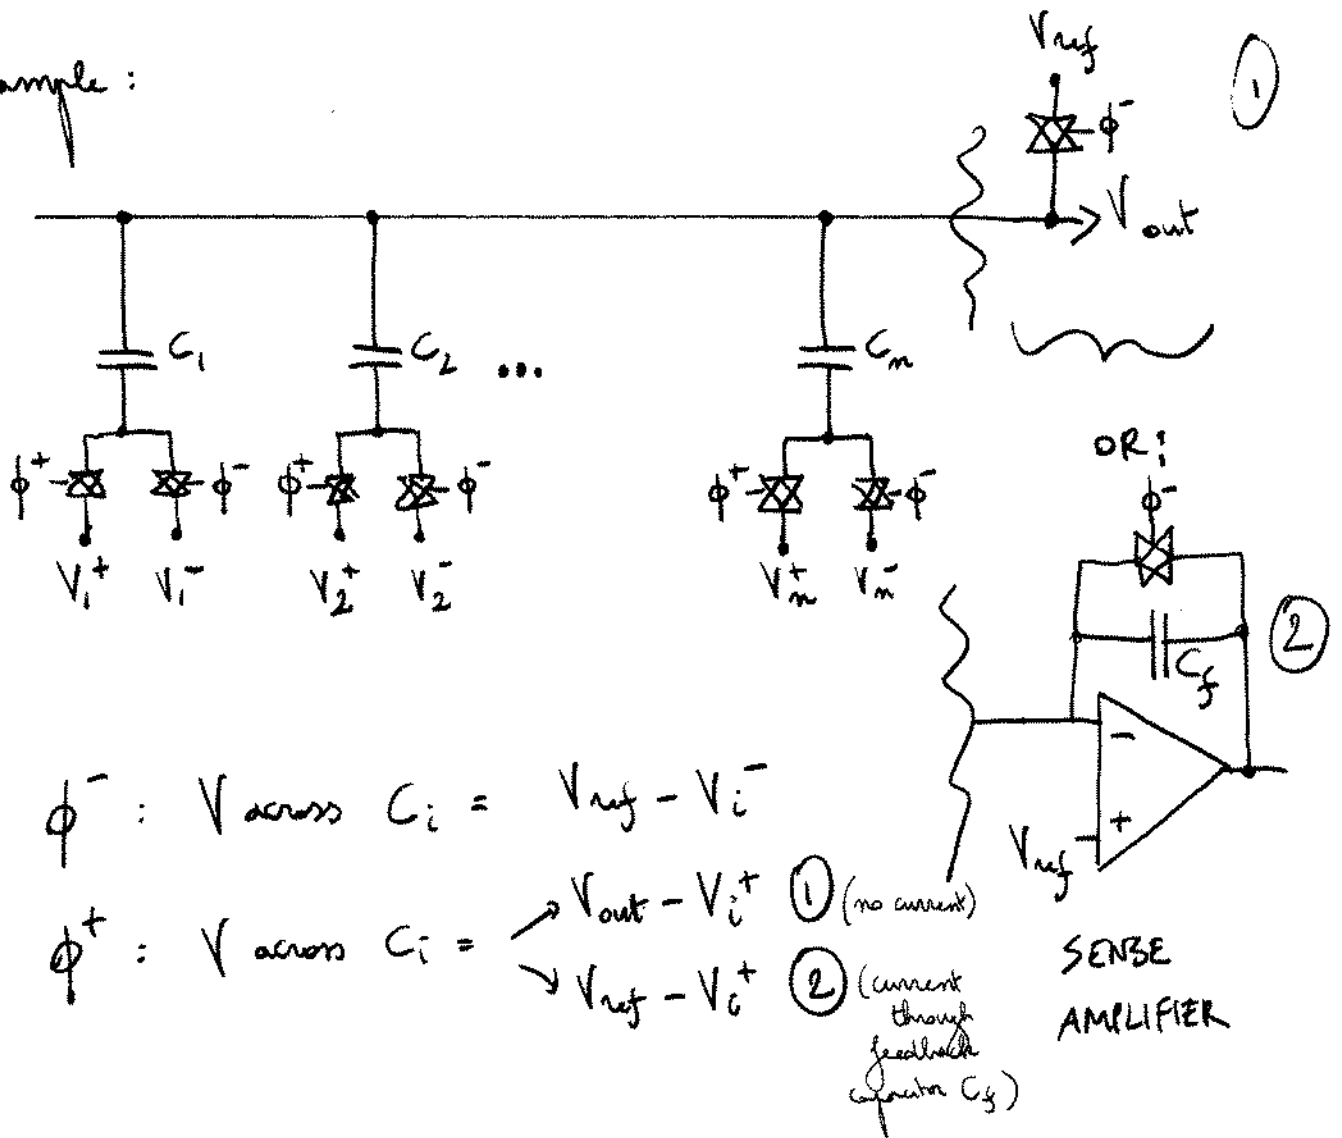 ample :
V_ref
①
ϕ^-
V_out
C_1
C_2
...
C_n
ϕ^+ ϕ^- ϕ^+ ϕ^- ϕ^+ ϕ^-
V_1^+ V_1^- V_2^+ V_2^- V_n^+ V_n^-
OR:
ϕ^-
C_f
②
-
+
V_ref
SENSE
AMPLIFIER
ϕ^- : V across C_i = V_ref - V_i^-
ϕ^+ : V across C_i = V_out - V_i^+ ① (no current)
V_ref - V_i^+ ② (current
through
feedback
capacitor C_f)